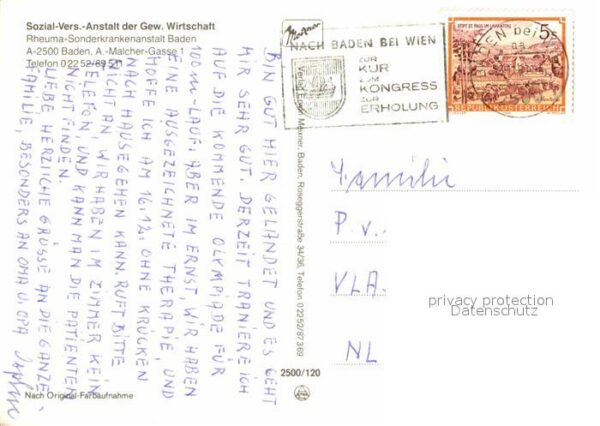 Sozial-Vers.-Anstalt der Gew. Wirtschaft
Rheuma-Sonderkrankenanstalt Baden
A-2500 Baden, A.-Malcher-Gasse 1
Telefon 0 22 52/89 511
BIN GUT HIER GELANDET UND ES GEHT
MIR SEHR GUT. DERZEIT TRANIERE ICH
AUF DIE KOMMENDE OLYMPIADE FÜR
100m-LAUF. ABER IM ERNST, WIR HABEN
EINE AUSGEZEICHNETE THERAPIE, UND
HOFFE ICH AM 16.12. OHNE KRÜCKEN
NACH HAUSE GEHEN KANN. RUFT BITTE
NICHT AN WIR HABEN IM ZIMMER KEIN
TELEFON, UND KANN MAN DIE PATIENTEN
NICHT FINDEN.
LIEBE HERZLICHE GRÜSSE AN DIE GANZE
FAMILIE, BESONDERS AN OMA U. OPA
Nach Original-Farbaufnahme
Meixner, Baden, Roseggerstraße 34/36, Telefon 0 22 52/87 3 69
2500/120
NACH BADEN BEI WIEN
ZUR
KUR
ZUM
KONGRESS
ZUR
ERHOLUNG
STIFT ST. PAUL IM LAVANTTAL
S5
REPUBLIK ÖSTERREICH
BADEN bei
Familie
P. v.
VLA.
NL
privacy protection
Datenschutz